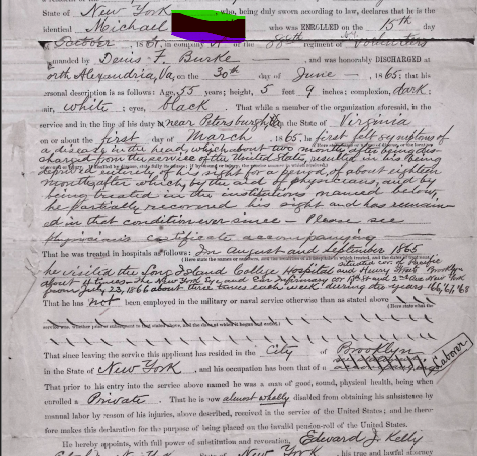 State of New York, who, being duly sworn according to law, declares that he is the
identical Michael who was ENROLLED on the 15th day
October, 1861, in company of the 88th regiment of N.Y. Volunteers
commanded by Denis F. Burke, and was honorably DISCHARGED at
North Alexandria, Va, on the 30th day of June, 1865; that his
personal description is as follows: Age, 55 years; height, 5 feet 9 inches; complexion, dark;
hair, white; eyes, black. That while a member of the organization aforesaid, in the
service and in the line of his duty at near Petersburgh, in the State of Virginia
on or about the first day of March, 1865, he first felt symptoms of
a disease in the head, which about two months after being dis-
charged from the service of the United States, resulted in his being
deprived entirely of his sight for a period of about eighteen
months after which, by the aid of physicians, and by
being treated in the institutions named below,
he partially recovered his sight and has remain-
ed in that condition ever since - Please see
Physician's certificate accompanying
That he was treated in hospitals as follows: In August and September 1865
he visited the Long Island College Hospital situated cor of Pacific and Henry Streets Brooklyn
about 4 times. The New York Eye and Ear Infirmary cor 13th St and 2nd Ave New York
from July 23, 1866 about three times each week during the years '66, '67, '68
That he has not been employed in the military or naval service otherwise than as stated above
(Here state the
service was, whether prior or subsequent to that stated above, and the dates at which it began and ended.)
That since leaving the service this applicant has resided in the City of Brooklyn
in the State of New York, and his occupation has been that of a Laborer
That prior to his entry into the service above named he was a man of good, sound, physical health, being when
enrolled a Private. That he is now almost wholly disabled from obtaining his subsistence by
manual labor by reason of his injuries, above described, received in the service of the United States; and he there
fore makes this declaration for the purpose of being placed on the invalid pension-roll of the United States.
He hereby appoints, with full power of substitution and revocation, Edward J. Kelly
of New York his true and lawful attorney